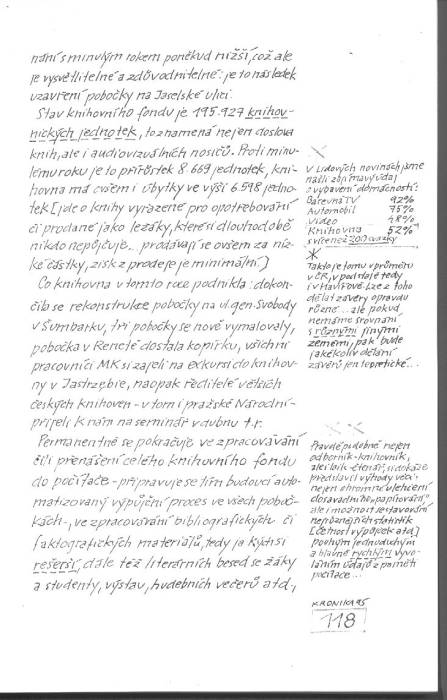 nání s minulým rokem poněkud nižší, což ale
je vysvětlitelné a zdůvodnitelné: je to následek
uzavření pobočky na Jaselské ulici.
Stav knihovního fondu je 195.927 knihov-
nických jednotek, to znamená nejen doslova
knih, ale i audiovizuálních nosičů. Proti minu-
lému roku je to přírůstek 8.669 jednotek, kni-
hovna má ovšem i úbytky ve výši 6.598 jedno-
tek [jde o knihy vyřazené pro opotřebování
či prodané jako ležáky, které si dlouhodobě
nikdo nepůjčuje... prodávají se ovšem za níz-
ké částky, zisk z prodeje je minimální.]
Co knihovna v tomto roce podnikla: dokon-
čila se rekonstrukce pobočky na ul. gen. Svobody
v Šumbarku, tři pobočky se nově vymalovaly,
pobočka v Reneté dostala kopírku, všichni
pracovníci MK si zajeli na exkursi do knihov-
ny v Jastrzębie, naopak ředitelé větších
českých knihoven - v tom i pražské Národní -
přijeli k nám na seminář v dubnu t.r.
Permanentně se pokračuje ve zpracovávání
či přenášení celého knihovního fondu
do počítače - připravuje se tím budoucí auto-
matizovaný výpůjční proces ve všech poboč-
kách -, ve zpracovávání bibliografických či
faktografických materiálů, tedy jakýchsi
rešerší, dále též literárních besed se žáky
a studenty, výstav, hudebních večerů atd.,
V Lidových novinách jsme
našli zajímavý údaj
o vybavení domácností:
Barevná TV 92%
Automobil 75%
Video 48%
Knihovna 52%
s více než 200 svazky
Tak to je tomu v průměru
v ČR, v podstatě tedy
i v Havířově. Lze z toho
dělat závěry opravdu
různé... ale pokud
nemáme srovnání
s různými jinými
zeměmi, pak bude
jakékoliv dělání
závěrů jen teoretické...
Pravděpodobně nejen
odborník-knihovník,
ale i laik-čtenář, si dokáže
představit výhody věci:
nejen ohromné ulehčení
dosavadního „papírování“,
ale i možnost sestavování
nejrůznějších statistik
[četnost výpůjček atd.]
pouhým jednoduchým
a hlavně rychlým vyvo-
láním údajů z paměti
počítače...
KRONIKA 95
118